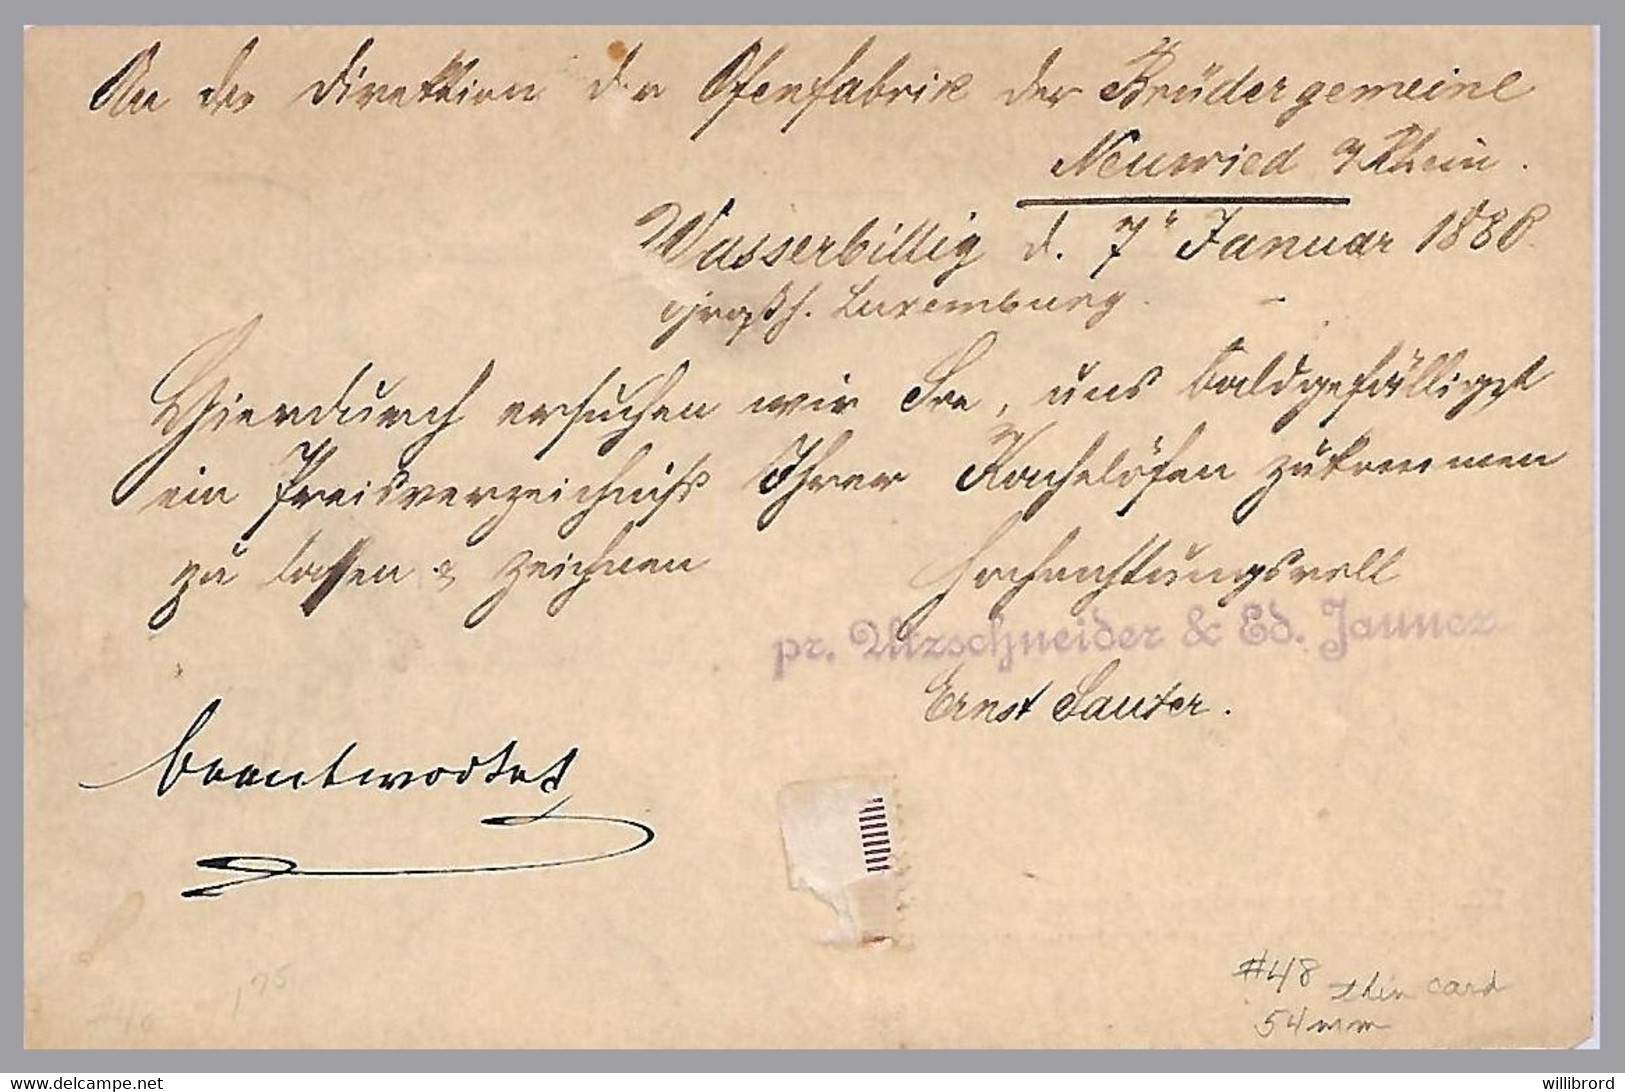 An die Direktion der Ofenfabrik der Brüdergemeine
Neuwied a/Rhein.
Wasserbillig d. 7" Januar 1886.
Großh. Luxemburg.
Hierdurch ersuchen wir Sie, uns baldgefälligst
ein Preisverzeichniß Ihrer Kachelöfen zukommen
zu lassen & zeichnen
Hochachtungsvoll
pr. Utzschneider & Ed. Jaunez
Ernst Sauter.
beantwortet
175
#48 thin card
54mm
Delcampe.net
willibrord